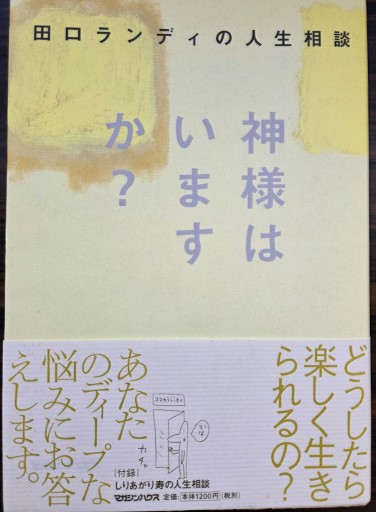 田口ランディの人生相談
神様は
います
か?
どうしたら
楽しく生き
られるの?
あなた
のディープな
悩みにお答
えします。
ガチャ
[付録]
しりあがり寿の人生相談
マガジンハウス 定価:本体1200円(税別)